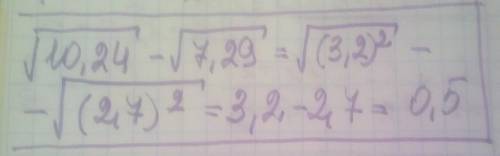 √10,24 - √7,29 = √(3,2)² -
- √(2,7)² = 3,2 - 2,7 = 0,5